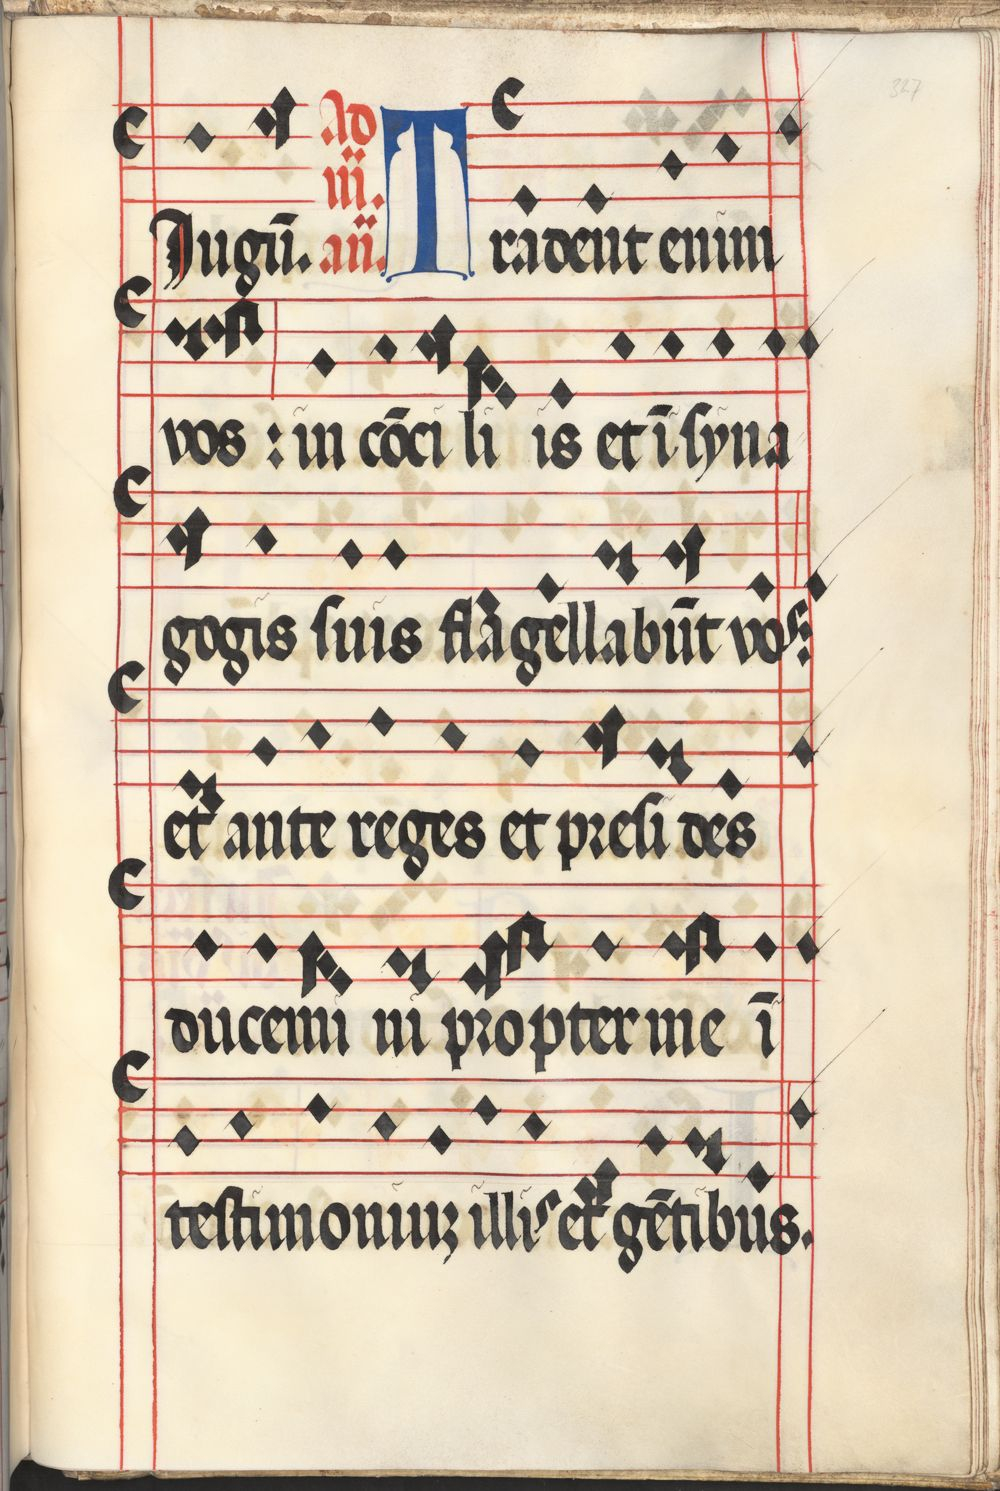 327
Ad
iii.
Jugū. añ. Tradēt enim
vos : in cōci li is et ī syna
gogis suis flagellabūt vos:
et ante reges et presi des
ducemi ni propter me ī
testimoniuʒ illis et gētibus.